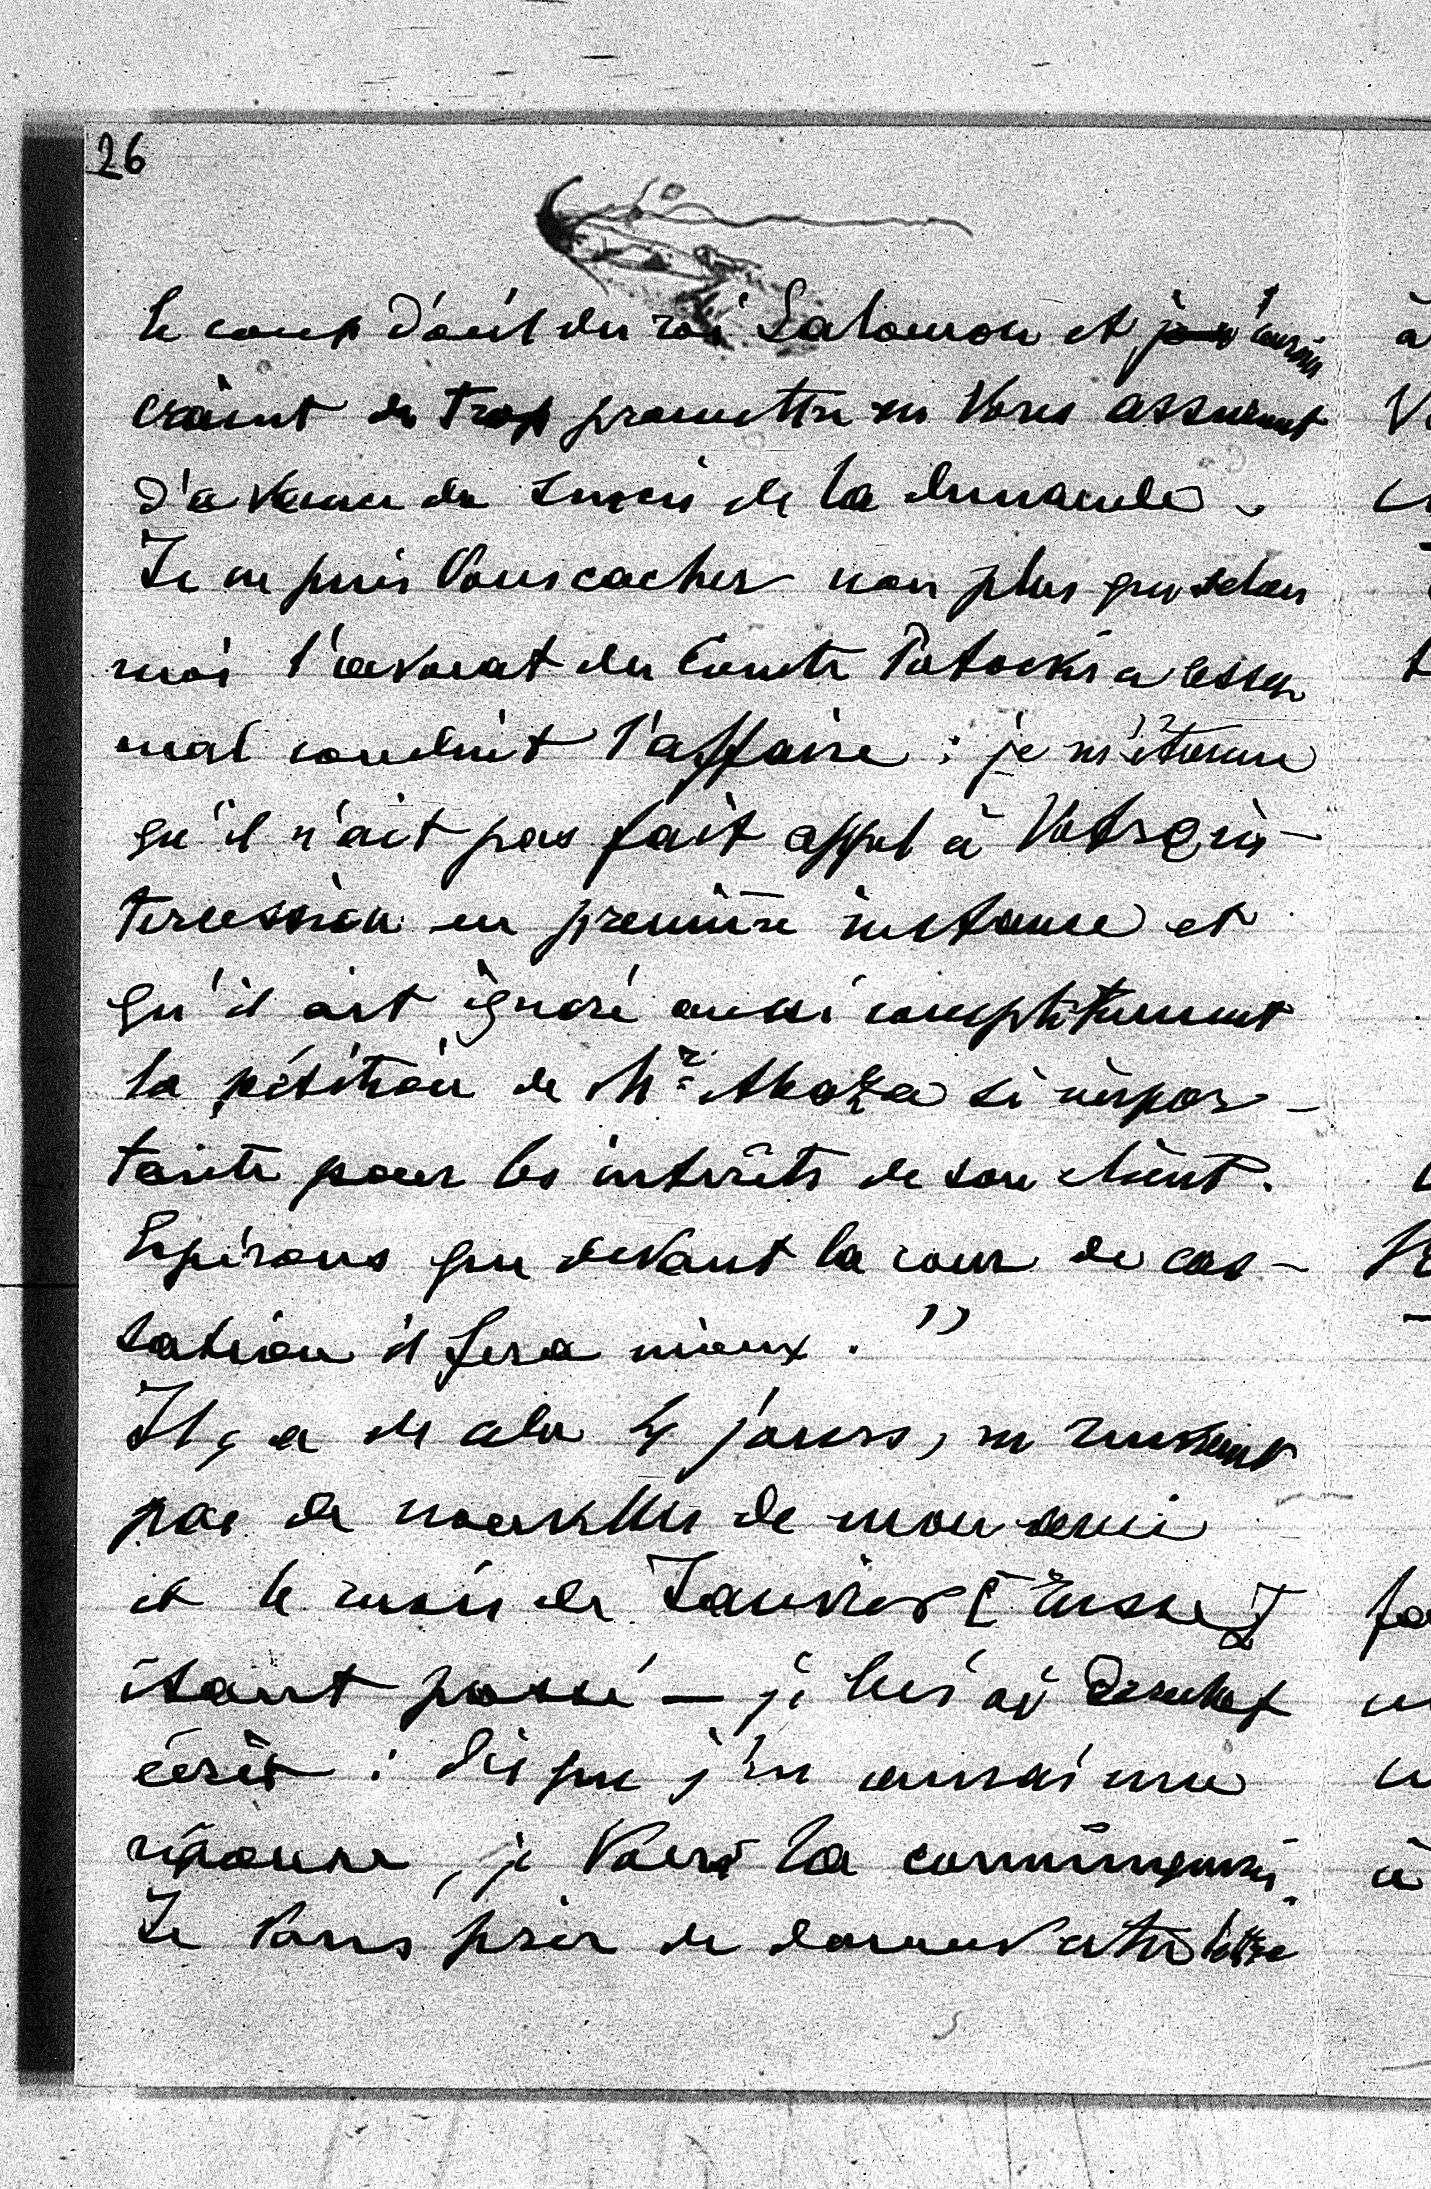 26
le coup d'œil du roi Salomon et j'aurais
craint de trop promettre en Vous assurant
d'avance du succès de la demande.
Je ne puis Vous cacher non plus que selon
moi l'avocat du Comte Potocki a assez
mal conduit l'affaire : je m'étonne
qu'il n'ait pas fait appel à Votre in-
tercession en première instance et
qu'il ait ignoré aussi complètement
la pétition de Mr si impor-
tante pour les intérêts de son client.
Espérons que devant la cour de cas-
sation il fera mieux."
Il y a de cela 4 jours, ne recevant
pas de nouvelles de mon ami
et le mois de Janvier [russe]
étant passé — je lui ai derechef
écrit : dès que j'en aurai une
réponse, je Vous la communiquerai.
Je Vous prie de donner cette lettre